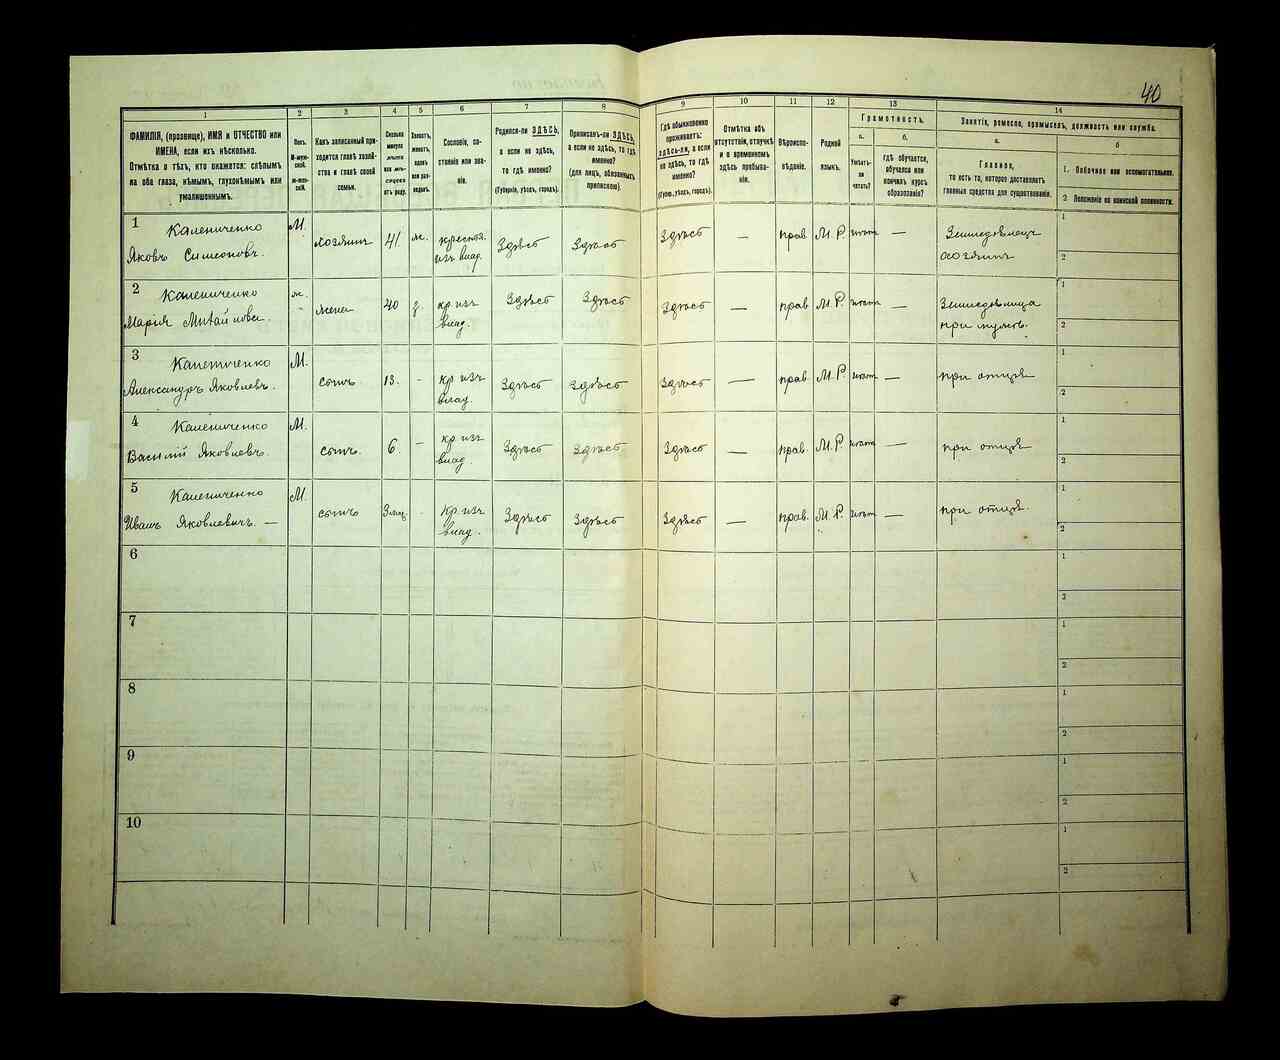 40
1
2
3
4
5
6
7
8
9
10
11
12
13
14
ФАМИЛІЯ, (прозвище), ИМЯ и ОТЧЕСТВО или
ИМЕНА, если ихъ нѣсколько.
Отмѣтка о тѣхъ, кто окажется: слѣпымъ
на оба глаза, нѣмымъ, глухонѣмымъ или
умалишеннымъ.
Полъ.
М-муж-
ской.
Ж-жен-
скій.
Какъ записанный при-
ходится главѣ хозяй-
ства и главѣ своей
семьи.
Сколько
минуло
лѣтъ
или мѣ-
сяцевъ
отъ роду.
Холостъ,
женатъ,
вдовъ
или раз-
веденъ.
Сословіе, со-
стояніе или зва-
ніе.
Родился-ли ЗДѢСЬ,
а если не здѣсь,
то гдѣ именно?
(Губернія, уѣздъ, городъ).
Приписанъ-ли ЗДѢСЬ,
а если не здѣсь, то гдѣ
именно?
(для лицъ, обязанныхъ
припискою).
Гдѣ обыкновенно
проживаетъ:
здѣсь-ли, а если
не здѣсь, то гдѣ
именно?
(Губер., уѣздъ, городъ).
Отмѣтка объ
отсутствіи, отлучкѣ
и о временномъ
здѣсь пребыва-
ніи.
Вѣроиспо-
вѣданіе.
Родной
языкъ.
Грамотность.
а.
Умѣетъ-
ли
читать?
б.
гдѣ обучается,
обучался или
кончилъ курсъ
образованія?
Занятіе, ремесло, промыселъ, должность или служба.
а.
Главное,
то есть то, которое доставляетъ
главныя средства для существованія.
б
1. Побочное или вспомогательное.
2 Положеніе по воинской повинности.
1 Калениченко М. хозяинъ 41. ж. крестья. Здѣсь Здѣсь Здѣсь — прав М.Р. — Земледѣлецъ 1
Яковъ Симеоновъ. изъ влад. хозяинъ 2
2 Калениченко жена 40 кр. изъ Здѣсь Здѣсь Здѣсь — прав М.Р. — Земледѣлица 1
Марія влад. при мужѣ. 2
3 Калениченко М. сынъ 13. - кр. изъ Здѣсь Здѣсь Здѣсь — прав М.Р. — при отцѣ 1
Александръ Яковлевъ. влад. 2
4 Калениченко М. сынъ. 6. — кр. изъ Здѣсь Здѣсь Здѣсь — прав. М.Р. — при отцѣ 1
Василій Яковлевъ. влад. 2
5 Калениченко М. сынъ - кр. изъ Здѣсь Здѣсь Здѣсь — прав. М.Р. — при отцѣ. 1
Иванъ Яковлевичъ. — влад. 2
6 1
2
7 1
2
8 1
2
9 1
2
10 1
2